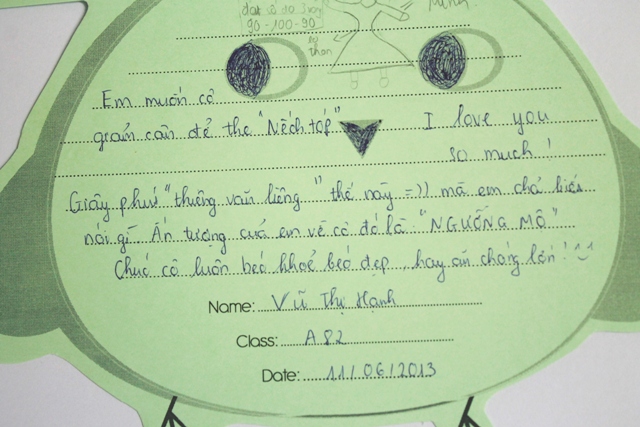 đạt số đo 3 vòng
90-100-90
Em muốn cô
giảm cân để thi "Nếch tóp"
I love you
so much!
Giây phút "thiêng văn liêng" thế này =)) mà em chả biết
nói gì. Ấn tượng của em về cô đó là: "NGƯỠNG MỘ"
Chúc cô luôn béo khoẻ béo đẹp, hay ăn chóng lớn!
Name: Vũ Thị Hạnh
Class: A82
Date: 11/06/2013